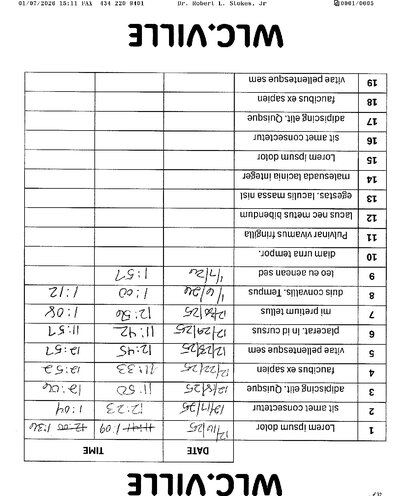 01/07/2026 15:11 FAX 434 220 8401 Dr. Robert L. Stokes, Jr 0001/0005
WLC.VILLE
DATE TIME
1 Lorem ipsum dolor 12/16/25 11:41 1:09 12:00 1:36
2 sit amet consectetur 12/17/25 12:23 1:04
3 adipiscing elit. Quisque 12/18/25 11:50 12:06
4 faucibus ex sapien 12/22/25 11:33
5 vitae pellentesque sem 12/23/25 12:45 12:57
6 placerat. in id cursus 12/29/25 11:42 11:57
7 mi pretium tellus 12/30/25 12:56 1:08
8 duis convallis. Tempus 1/6/26 1:00 1:12
9 leo eu aenean sed 1/7/26 1:57
10 diam urna tempor.
11 Pulvinar vivamus fringilla
12 lacus nec metus bibendum
13 egestas. Iaculis massa nisl
14 malesuada lacinia integer
15 Lorem ipsum dolor
16 sit amet consectetur
17 adipiscing elit. Quisque
18 faucibus ex sapien
19 vitae pellentesque sem
WLC.VILLE